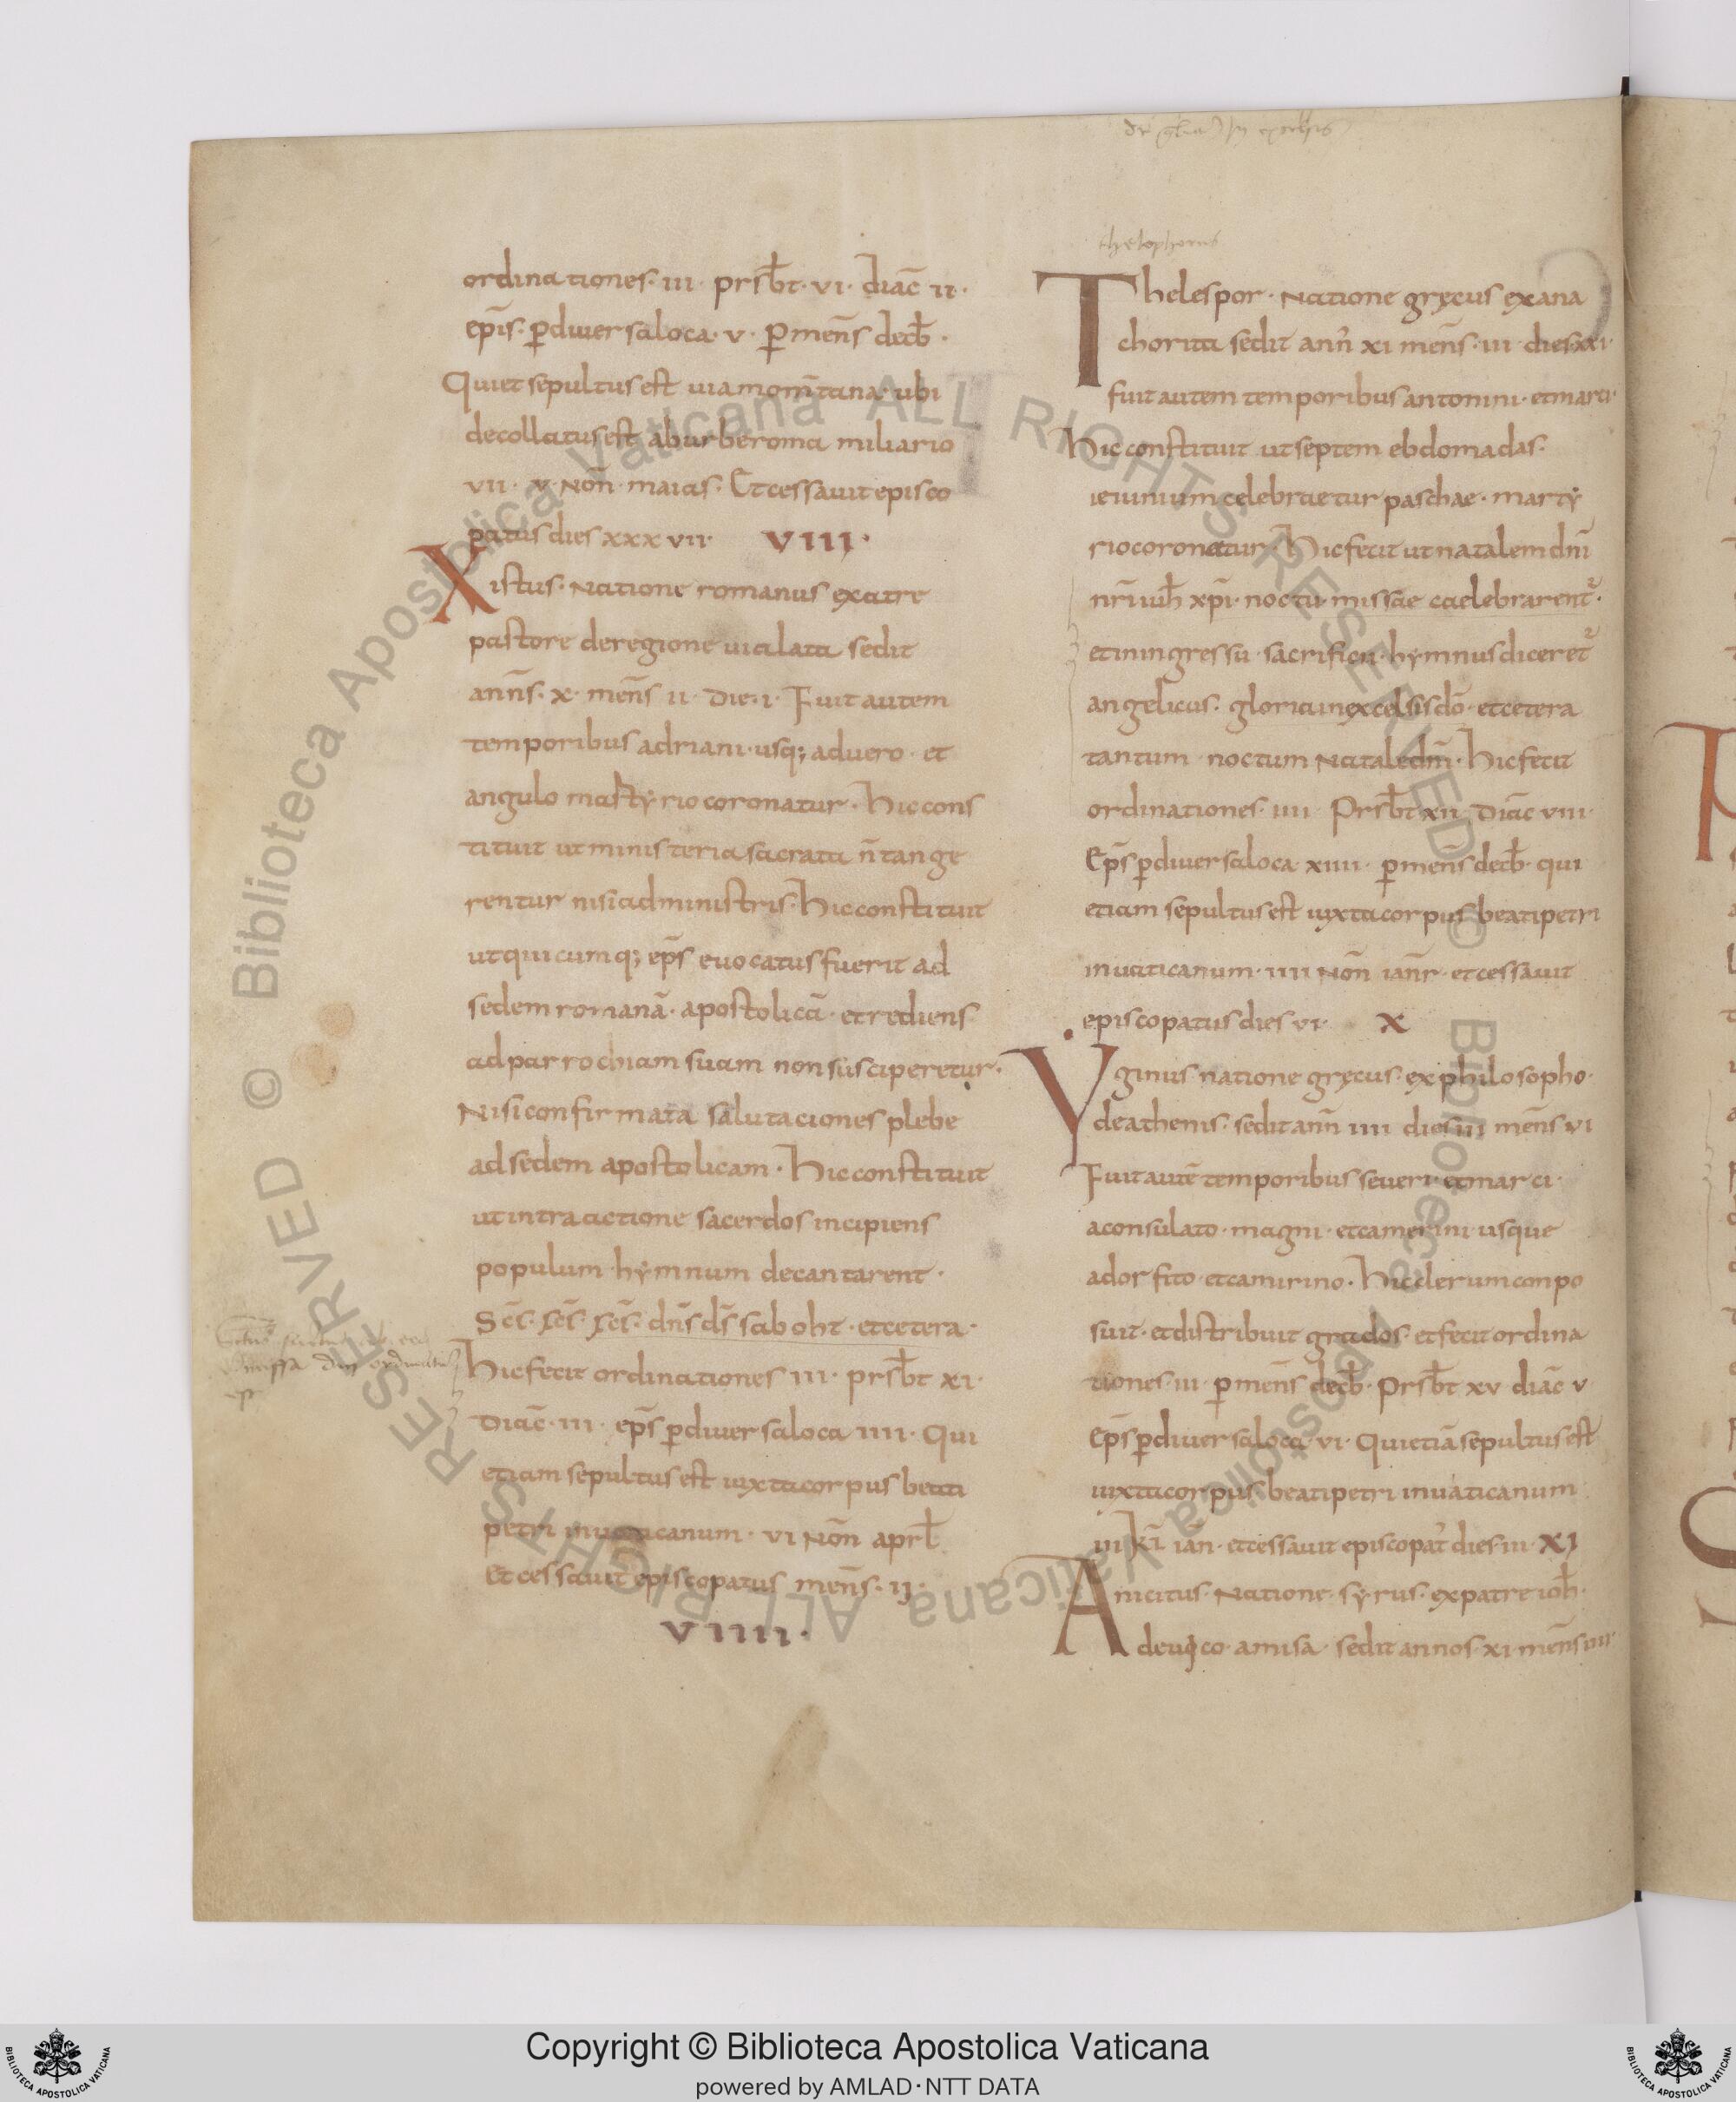 de gl̅ia in excelsis
ordinationes· iii· prsbt̅· vi· diac̅ ii·
epi̅s· p̲diuersaloca· v· p̲ men̅s decb̅·
Quiet sepultus est uia mom̅tana· ubi
decollatus est ab urbe roma miliario
vii· v· non̅ maias· Et cessauit episco
patus dies xxxvii· VIII·
Xistus· natione romanus ex atre
pastore de regione uialata sedit
ann̅s· x· men̅s ii· die· i· Fuit autem
temporibus adriani· usq; aduero· et
angulo mastyrio coronatur· hic cons
tituit ut ministeria sacrata n̅ tange
rentur nisi administris· hic constituit
ut quicumq; ep̅s euocatus fuerit ad
sedem romana̅· apostolica̅· et rediens
ad parrochiam suam non susciperetur·
Nisi confirmata salutaciones plebe
ad sedem apostolicam· hic constituit
ut intra actione sacerdos incipiens
populum hymnum decantarent·
Sc̅s· sc̅s· sc̅s· dn̅s ds̅ saboht· et cetera·
hic fecit ordinationes iii· prsbt̅ xi·
Diac̅· iii· ep̅s p̲diuersaloca iiii· Qui
etiam sepultus est iuxta corpus beati
petri in uaticanum· vi non̅ aprl̅
Et cessauit episcopatus men̅s· ii·
VIIII·
thelephorus
Thelespor· natione gręcus ex ana
chorita sedit ann̅ xi men̅s· iii· dies xxi·
fuit autem temporibus antonini· et marci·
hic constituit ut septem ebdomadas·
ieiunium celebraetur paschae· marty
rio coronatur· hic fecit ut natalem dn̅i
nr̅i iuh̅ xp̅i· noctu· missae caelebrarent᷑·
et in ingressu· sacrificii· hymnus diceret᷑
angelicus· gloria in excelsis do̅· et cetera
tantum noctum natale dn̅i· hic fecit
ordinationes· iiii Prsbt̅ xii Diac̅ viii·
Ep̅s p̲diuersaloca xiiii· p̲ men̅s decb̅· qui
etiam sepultus est iuxta corpus beati petri
in uaticanum· iiii non̅ ian̅r· et cessauit
episcopatus dies vi· X
Yginus natione gręcus· ex philosopho·
de athenis· sedit ann̅ iiii dies iii men̅s vi
Fuit aute̅ temporibus seueri· et marci·
a consulato· magni· et camerini· usque
ad orfito· et camirino· hic clerum conpo
suit· et distribuit grados· et fecit ordina
tiones· iii p̲ men̅s decb̅· Prsbt̅ xv diac̅ v
Ep̅s p̲diuersaloca· vi· Qui etia̅ sepultus est
iuxta corpus beati petri in uaticanum
iii kl̅ ian̅· et cessauit episcopat᾽ dies· iii· XI
Anicitus· natione· syrus· ex patre ioh̅·
de uico· amisa· sedit annos· xi· men̅s iiii·
Copyright © Biblioteca Apostolica Vaticana
powered by AMLAD·NTT DATA